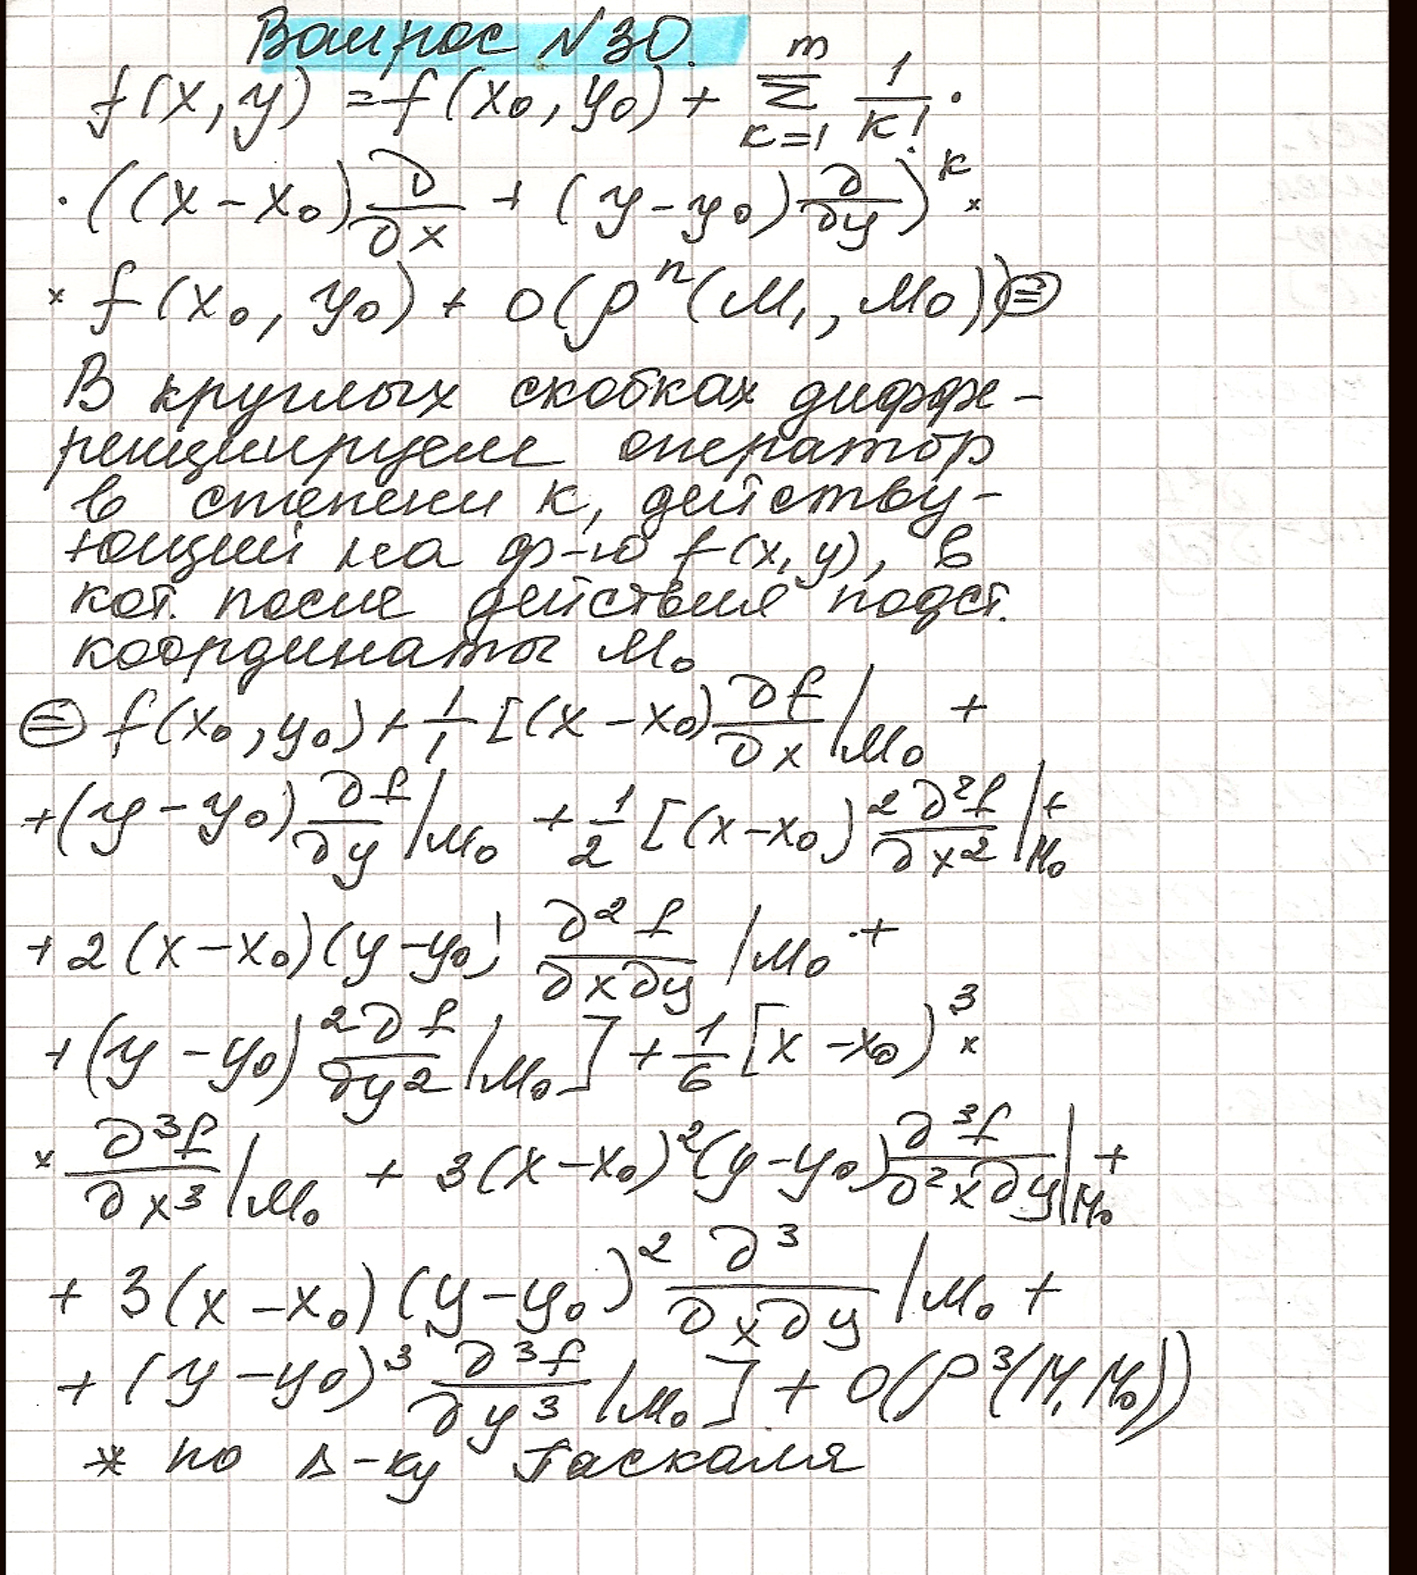 Вопрос №30.
f(x, y) = f(x₀, y₀) + Σ_{k=1}^{m} 1/k! ·
· ((x − x₀) ∂/∂x + (y − y₀) ∂/∂y)^k ×
× f(x₀, y₀) + o(ρⁿ(M, M₀)) ⊜
В круглых скобках диффе-
ренцируем оператор
в степени k, действу-
ющий на ф-ю f(x, y), в
кот. после действия подст.
координаты M₀
⊜ f(x₀, y₀) + 1/1 [(x − x₀) ∂f/∂x |M₀ +
+ (y − y₀) ∂f/∂y |M₀ + 1/2 [(x − x₀)² ∂²f/∂x² |M₀ +
+ 2 (x − x₀)(y − y₀) ∂²f/∂x∂y |M₀ +
+ (y − y₀)² ∂f/∂y² |M₀] + 1/6 [x − x₀)³ ×
× ∂³f/∂x³ |M₀ + 3(x − x₀)²(y − y₀) ∂³f/∂²x∂y |M₀ +
+ 3(x − x₀)(y − y₀)² ∂³/∂x∂y |M₀ +
+ (y − y₀)³ ∂³f/∂y³ |M₀] + o(ρ³(M, M₀))
* по Δ-ку Паскаля